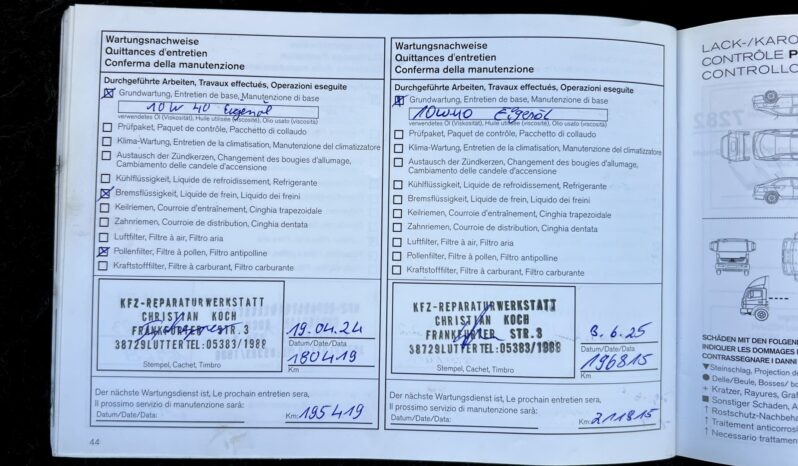 Wartungsnachweise
Quittances d'entretien
Conferma della manutenzione
Durchgeführte Arbeiten, Travaux effectués, Operazioni eseguite
Grundwartung, Entretien de base, Manutenzione di base
10W 40 Eigenöl
verwendetes Öl (Viskosität), Huile utilisée (viscosité), Olio usato (viscosità)
Prüfpaket, Paquet de contrôle, Pacchetto di collaudo
Klima-Wartung, Entretien de la climatisation, Manutenzione del climatizzatore
Austausch der Zündkerzen, Changement des bougies d'allumage,
Cambiamento delle candele d'accensione
Kühlflüssigkeit, Liquide de refroidissement, Refrigerante
Bremsflüssigkeit, Liquide de frein, Liquido dei freini
Keilriemen, Courroie d'entraînement, Cinghia trapezoidale
Zahnriemen, Courroie de distribution, Cinghia dentata
Luftfilter, Filtre à air, Filtro aria
Pollenfilter, Filtre à pollen, Filtro antipolline
Kraftstofffilter, Filtre à carburant, Filtro carburante
KFZ-REPARATURWERKSTATT
CHRISTIAN KOCH
FRANKFURTER STR. 3
38729 LUTTER TEL: 05383/1988
Stempel, Cachet, Timbro
19.04.24
Datum/Date/Data:
180419
Km
Der nächste Wartungsdienst ist, Le prochain entretien sera,
Il prossimo servizio di manutenzione sarà:
Datum/Date/Data:
Km: 195419
44
Wartungsnachweise
Quittances d'entretien
Conferma della manutenzione
Durchgeführte Arbeiten, Travaux effectués, Operazioni eseguite
Grundwartung, Entretien de base, Manutenzione di base
10W40 Eigenöl
verwendetes Öl (Viskosität), Huile utilisée (viscosité), Olio usato (viscosità)
Prüfpaket, Paquet de contrôle, Pacchetto di collaudo
Klima-Wartung, Entretien de la climatisation, Manutenzione del climatizzatore
Austausch der Zündkerzen, Changement des bougies d'allumage,
Cambiamento delle candele d'accensione
Kühlflüssigkeit, Liquide de refroidissement, Refrigerante
Bremsflüssigkeit, Liquide de frein, Liquido dei freini
Keilriemen, Courroie d'entraînement, Cinghia trapezoidale
Zahnriemen, Courroie de distribution, Cinghia dentata
Luftfilter, Filtre à air, Filtro aria
Pollenfilter, Filtre à pollen, Filtro antipolline
Kraftstofffilter, Filtre à carburant, Filtro carburante
KFZ-REPARATURWERKSTATT
CHRISTIAN KOCH
FRANKFURTER STR. 3
38729 LUTTER TEL: 05383/1988
Stempel, Cachet, Timbro
3.6.25
Datum/Date/Data:
196815
Km
Der nächste Wartungsdienst ist, Le prochain entretien sera,
Il prossimo servizio di manutenzione sarà:
Datum/Date/Data:
Km: 211815
LACK-/KARO
CONTRÔLE P
CONTROLLO
SCHÄDEN MIT DEN FOLGEN
INDIQUER LES DOMMAGES
CONTRASSEGNARE I DANNI
Steinschlag, Projection de
Delle/Beule, Bosses/ bo
+ Kratzer, Rayures, Graf
Sonstiger Schaden, A
↑ Rostschutz-Nachbeha
↑ Traitement anticorros
↑ Necessario trattamen